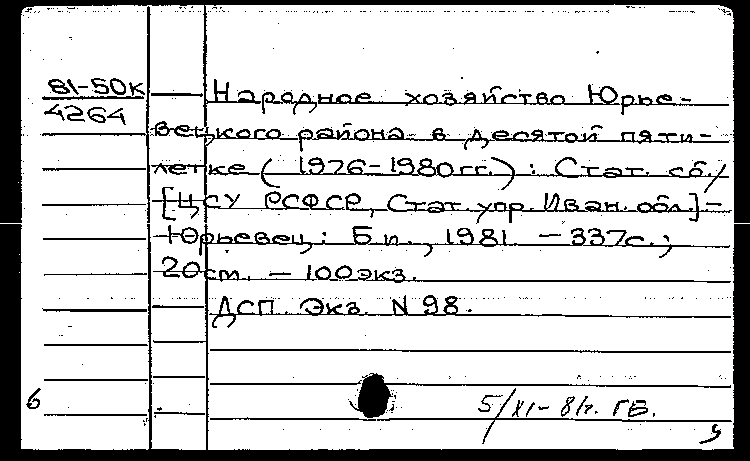 81-50к
4264
Народное хозяйство Юрье-
вецкого района в десятой пяти-
летке (1976-1980гг.): Стат. сб./
[ЦСУ РСФСР, Стат. упр. Иван. обл.]-
Юрьевец: Б.и., 1981. - 337с.;
20см. - 100экз.
ДСП. Экз. N 98.
6
5/XI-81г. ГБ.